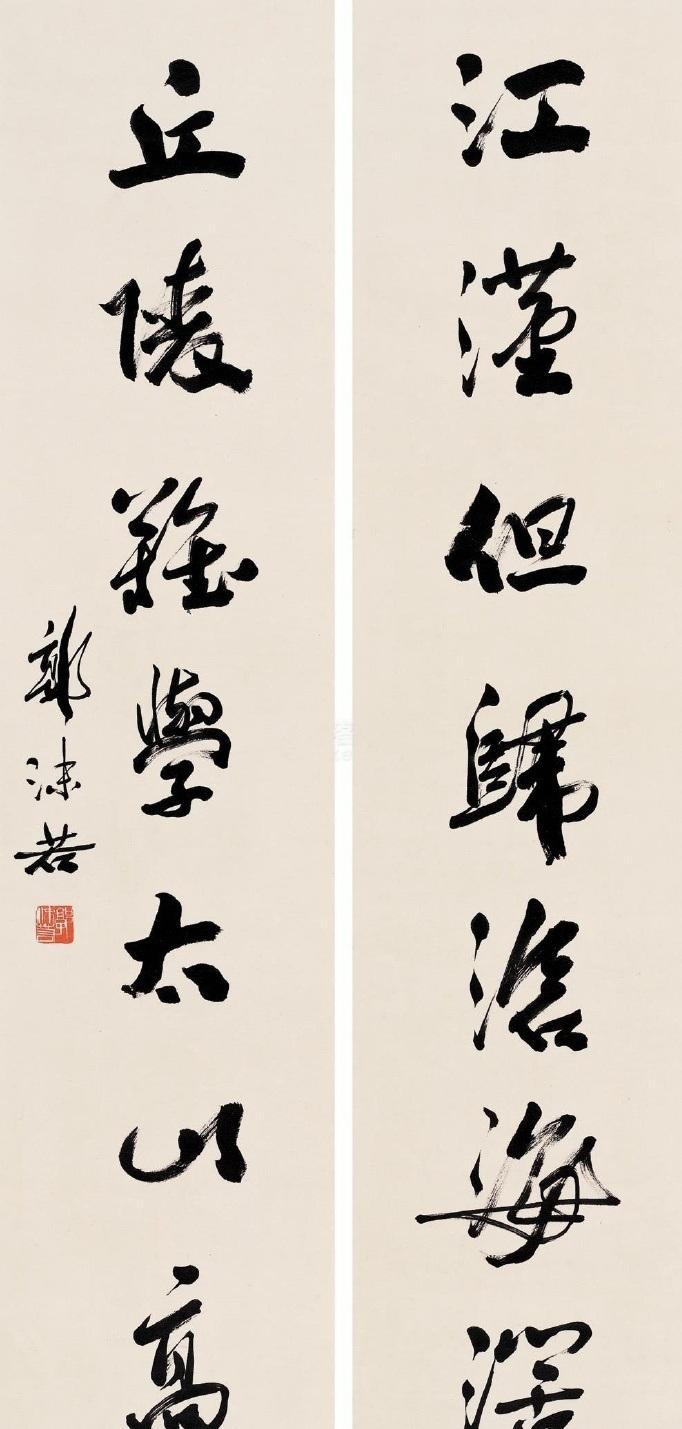 江漢但歸滄海濶
丘陵難學太山高
郭沫若